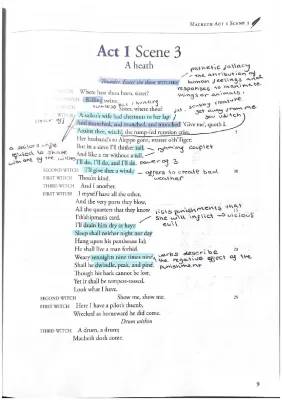 MACBETH ACT 1 SCENE 3
Act 1 Scene 3
A heath
pathetic fallacy
- the attribution of
human feelings and
responses to inanimate
things or animals.
Thunder. Enter the three WITCHES
Where hast thou been, sister?
Killing swine.
Sister, where thou?
A sailor's wife had chestnuts in her lap
And munched, and munched, and munched. 'Give me,' quoth I.
'Aroint thee, witch', the rump-fed runnion cries.
Her husband's to Aleppo gone, master o'th'Tiger:
But in a sieve I'll thither sail,
And like a rat without a tail,
I'll do, I'll do, and I'll do.
rhyming couplet
power of 3
SECOND WITCH I'll give thee a wind.
offers to create bad
weather
FIRST WITCH Thou'rt kind.
THIRD WITCH And I another.
FIRST WITCH I myself have all the other,
And the very ports they blow,
All the quarters that they know
I'th'shipman's card.
I'll drain him dry as hay:
Sleep shall neither night nor day
Hang upon his penthouse lid;
He shall live a man forbid.
Weary sennights nine times nine
Shall he dwindle, peak, and pine;
Though his bark cannot be lost,
Yet it shall be tempest-tossed.
Look what I have.
lists punishments that
she will inflict → vicious
evil
verbs describe
the negative effect of the
punishment
SECOND WITCH Show me, show me. 25
FIRST WITCH Here I have a pilot's thumb,
Wrecked as homeward he did come.
Drum within
THIRD WITCH A drum, a drum;
Macbeth doth come.
9